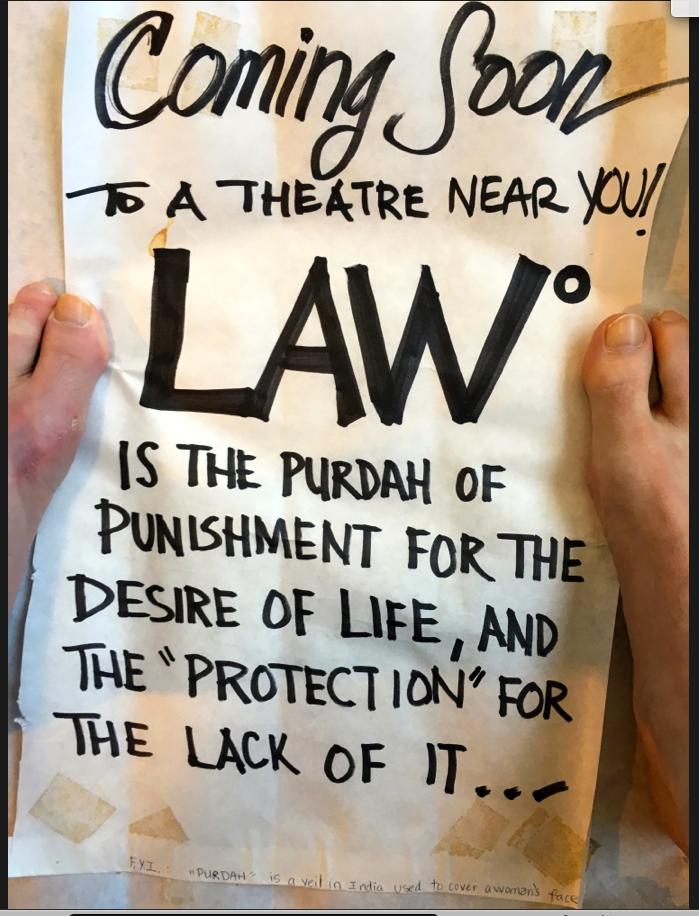 Coming Soon
TO A THEATRE NEAR YOU!
LAW°
IS THE PURDAH OF
PUNISHMENT FOR THE
DESIRE OF LIFE, AND
THE "PROTECTION" FOR
THE LACK OF IT...
F.Y.I.: "PURDAH" is a veil in India used to cover a woman's face